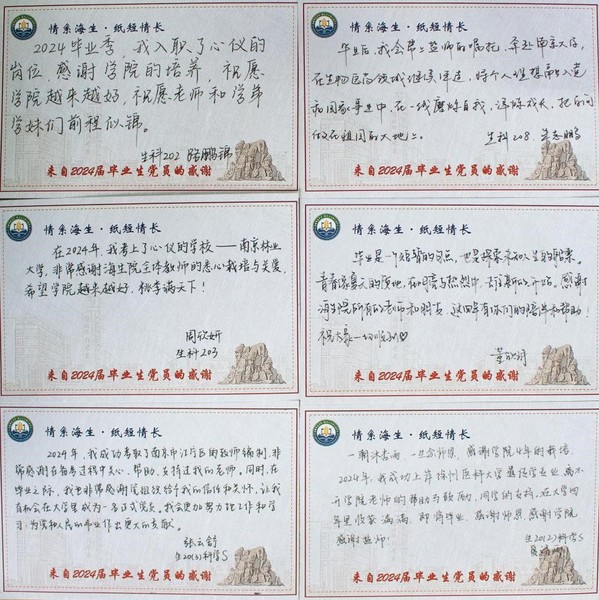 情系海生·纸短情长
2024毕业季，我入职了心仪的
岗位，感谢学院的培养，祝愿
学院越来越好，祝愿老师和学弟
学妹们前程似锦。
生科202 陈鹏锦
来自2024届毕业生党员的感谢
情系海生·纸短情长
毕业后，我会带上恩师的嘱托，奔赴南京大学，
在生物医药领域继续深造，将个人理想融入党
和国家事业中，在一线磨砺自我，淬炼成长，把
做在祖国的大地上。
生科208
来自2024届毕业生党员的感谢
情系海生·纸短情长
在2024年，我考上了心仪的学校——南京林业
大学，非常感谢海生院全体教师的悉心栽培与关爱，
希望学院越来越好，桃李满天下！
周欣妍
生科203
来自2024届毕业生党员的感谢
情系海生·纸短情长
毕业是一个短暂的句点，也是探索未知人生的
感谢
海生院所有的老师和朋友，这四年有你们的陪伴和帮助！
祝大家一切顺利♡
来自2024届毕业生党员的感谢
情系海生·纸短情长
2024年，我成功考取了南京市江宁区的教师编制，非
常感谢在备考过程中关心、帮助、支持过我的老师。同时，在
毕业之际，我也非常感谢党组织给予我的信任和关怀，让我
有机会在大学里成为一名正式党员，我会更加努力地工作和学
习，为党和人民的事业作出更大的贡献。
张云舒
生20(3)科学S
来自2024届毕业生党员的感谢
情系海生·纸短情长
一朝沐杏雨，一生念师恩，感谢学院4年的栽培，
2024年，我成功上岸徐州医科大学 专业，离不
开学院老师的帮助与鼓励，同学的支持，在大学四
年里收获满满，即将毕业，感谢师恩，感谢学院
感谢恩师！
生20(2)科学S
来自2024届毕业生党员的感谢